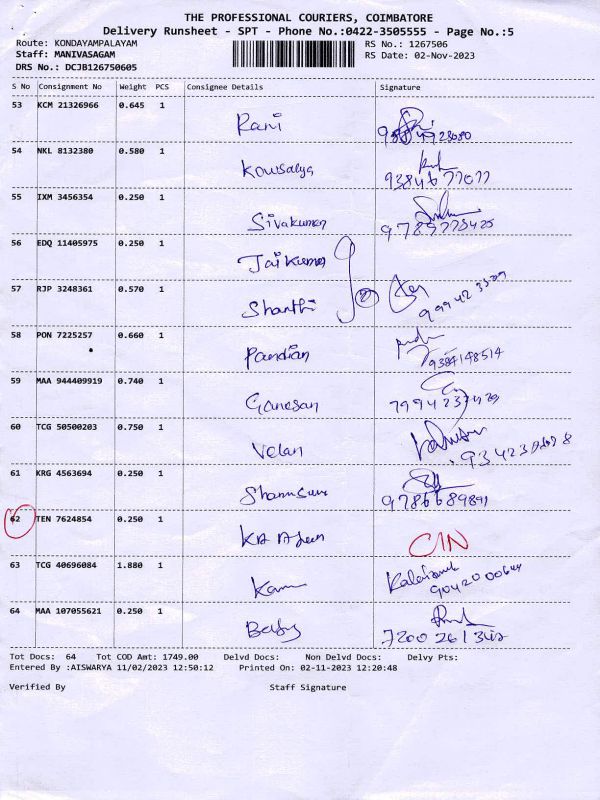 THE PROFESSIONAL COURIERS, COIMBATORE
Delivery Runsheet - SPT - Phone No.:0422-3505555 - Page No.:5
Route: KONDAYAMPALAYAM
Staff: MANIVASAGAM
DRS No.: DCJB126750605
RS No.: 1267506
RS Date: 02-Nov-2023
S No Consignment No Weight PCS Consignee Details Signature
53 KCM 21326966 0.645 1 Rani
54 NKL 8132380 0.580 1 Kowsalya 9384677077
55 IXM 3456354 0.250 1 Sivakumar
56 EDQ 11405975 0.250 1 Jaikumar
57 RJP 3248361 0.570 1 Shanthi 2
58 PON 7225257 0.660 1 Pandian 9384148514
59 MAA 944409919 0.740 1 Ganesan
60 TCG 50500203 0.750 1 Velan
61 KRG 4563694 0.250 1 9786689891
62 TEN 7624854 0.250 1 CIN
63 TCG 40696084 1.880 1
64 MAA 107055621 0.250 1 Baby
Tot Docs: 64 Tot COD Amt: 1749.00 Delvd Docs: Non Delvd Docs: Delvy Pts:
Entered By :AISWARYA 11/02/2023 12:50:12 Printed On: 02-11-2023 12:20:48
Verified By Staff Signature